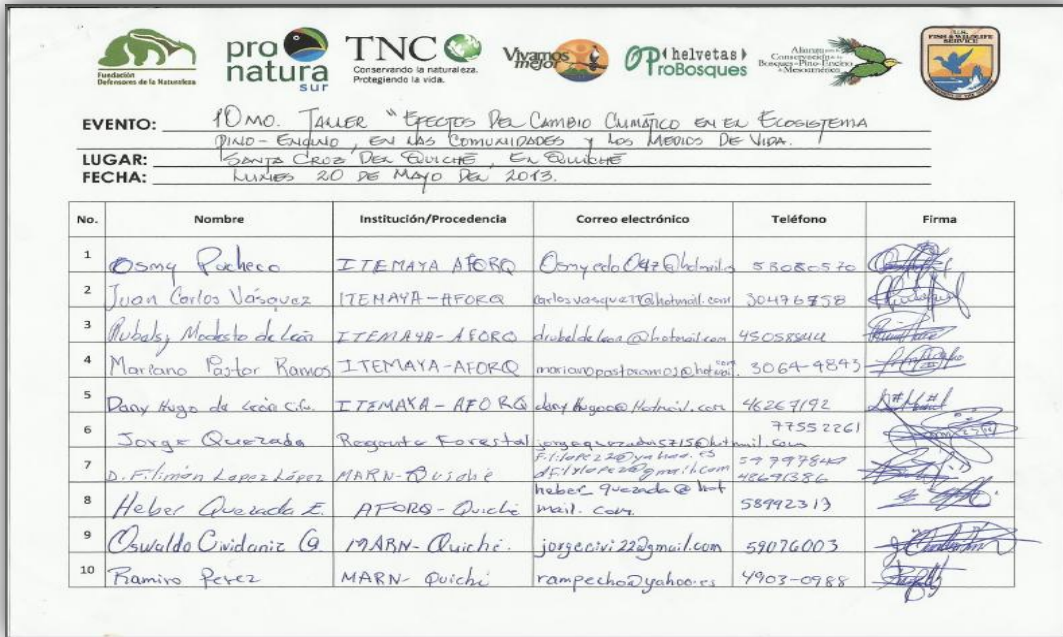 Fundación
Defensores de la Naturaleza
pro
natura
sur
TNC
Conservando la naturaleza.
Protegiendo la vida.
Vivamos
mejor
helvetas
ProBosques
Alianza para la
Conservación de los
Bosques de Pino-Encino
de Mesoamérica
U.S.
FISH & WILDLIFE
SERVICE
EVENTO: 10MO. TALLER "EFECTOS DEL CAMBIO CLIMÁTICO EN EL ECOSISTEMA
PINO-ENCINO, EN LAS COMUNIDADES y LOS MEDIOS DE VIDA.
LUGAR: SANTA CRUZ DEL QUICHÉ, EL QUICHÉ
FECHA: LUNES 20 DE MAYO DEL 2013.
No. Nombre Institución/Procedencia Correo electrónico Teléfono Firma
1 Osmy Pacheco ITEMAYA AFORQ 53080570
2 Juan Carlos Vásquez ITEMAYA-AFORQ 30476758
3 Modesto de León ITEMAYA-AFORQ
4 Mariano Pastor Ramos ITEMAYA-AFORQ 3064-4843
5 Dany Hugo de León ITEMAYA-AFORQ 46267192
6 Jorge Quezada Regente Forestal 77552261
7 D. Filimón Lopez López MARN-Quiché 48691386
8 Heber Quezada E. AFORQ-Quiché heber_quezada@hot
mail.com. 58992313
9 Oswaldo Cividaniz G. MARN-Quiché. jorgecivi22@gmail.com 59076003
10 Ramiro Perez MARN-Quiché rampecho@yahoo.es 4903-0988